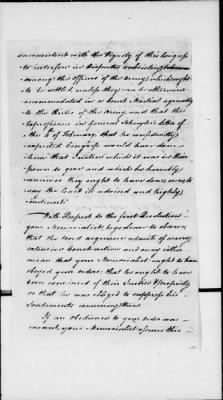 inconsistent with the Dignity of this Congress
to interfere in Disputes subsisting
among the officers of the Army; which ought
to be settled unless they can be otherwise
accommodated in a Court Martial agreeably
to the Rules of the Army, and that this
Interference in General Schuyler's letter of
the of February, that he confidently
expected Congress would have done
him that Justice which it was in their
power to give and which he humbly
conceives they ought to have done, was to
say the least ill advised and highly
indecent:
With Respect to the first Resolution
your Memorialist begs leave to observe
that the word acquiesce admits of a very
extensive Construction and may either
mean that your Memorialist ought to have
obeyed your orders; that he ought to have
been convinced of their Justice & Propriety
or that he was obliged to suppress his
Sentiments concerning them.
If an obedience to your order was
meant, your Memorialist assures this